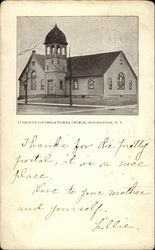 PLYMOUTH CONGREGATIONAL CHURCH, BINGHAMTON, N. Y.
Thanks for the pretty
postal, it is a nice
place.
Love to your mother
and yourself.
Lillie.